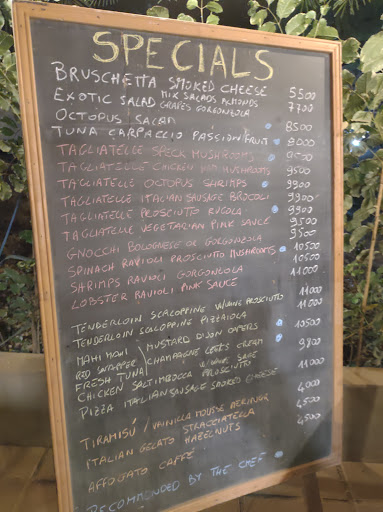 SPECIALS
BRUSCHETTA SMOKED CHEESE 5500
EXOTIC SALAD MIX SALADS ALMONDS GRAPES GORGONZOLA 7700
OCTOPUS SALAD 8500
TUNA CARPACCIO PASSION FRUIT 9000
TAGLIATELLE SPECK MUSHROOMS 9500
TAGLIATELLE CHICKEN MUSHROOMS 9500
TAGLIATELLE OCTOPUS SHRIMPS 9900
TAGLIATELLE ITALIAN SAUSAGE BROCOLI 9900
TAGLIATELLE PROSCIUTTO RUCOLA 9900
TAGLIATELLE VEGETARIAN PINK SAUCE 9500
GNOCCHI BOLOGNESE OR GORGONZOLA 9500
SPINACH RAVIOLI PROSCIUTTO MUSHROOMS 10500
SHRIMPS RAVIOLI GORGONZOLA 10500
LOBSTER RAVIOLI PINK SAUCE 11000
TENDERLOIN SCALOPPINE PROSCIUTTO 11000
TENDERLOIN SCALOPPINE PIZZAIOLA 11000
MAHI MAHI / MUSTARD DIJON CAPERS
RED SNAPPER / CHAMPAGNE LEEKS CREAM 10500
FRESH TUNA
CHICKEN SALTIMBOCCA WINE SAGE PROSCIUTTO 9900
PIZZA ITALIAN SAUSAGE SMOKED CHEESE 11000
TIRAMISÚ / VAINILLA MOUSSE 4000
ITALIAN GELATO STRACCIATELLA HAZELNUTS 4500
AFFOGATO CAFFÉ 4500
RECOMMENDED BY THE CHEF